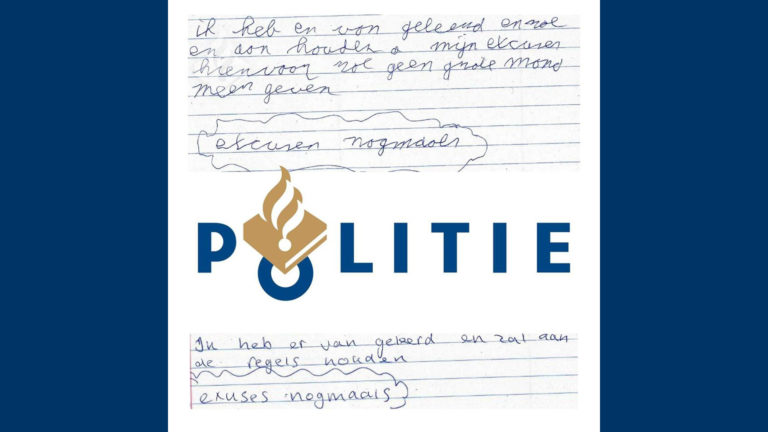 ik heb er van geleerd en zal
en aan houden & mijn excuses
hiervoor zal geen grote mond
meer geven
excuses nogmaals
POLITIE
Ik heb er van geleerd en zal aan
de regels houden
exuses nogmaals